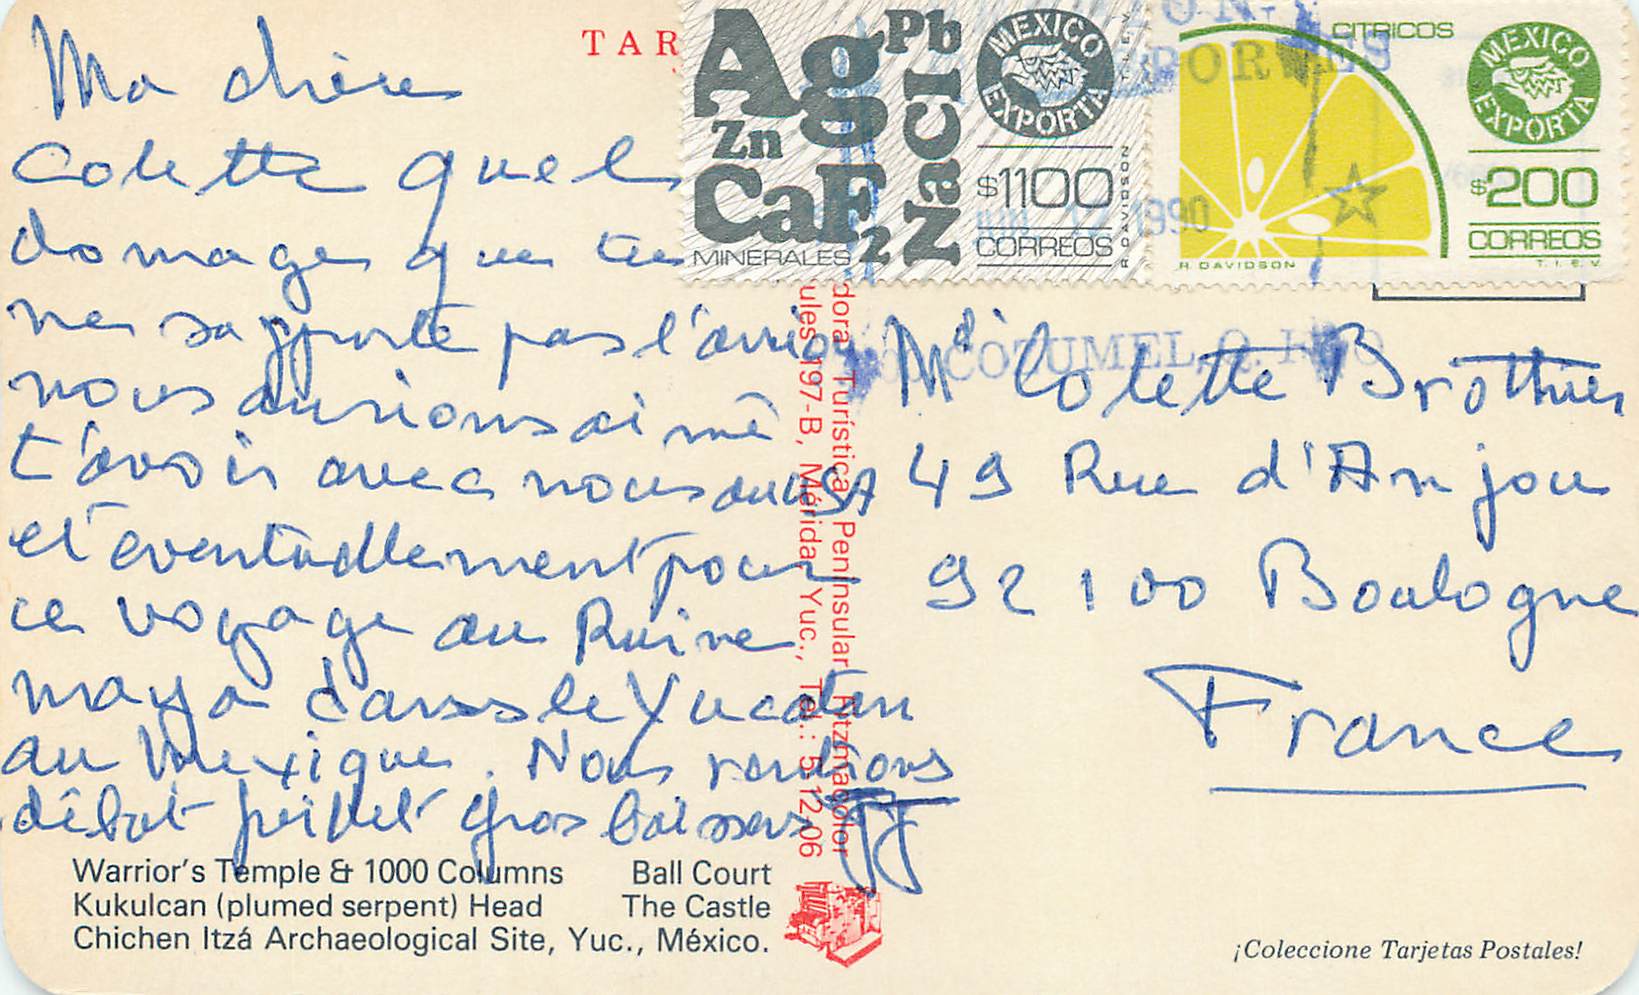 TAR
Ag
Pb
Zn
NaCl
CaF2
MINERALES
MEXICO
EXPORTA
$1100
CORREOS
R DAVIDSON
T.I.E.V.
CITRICOS
MEXICO
EXPORTA
$200
CORREOS
R. DAVIDSON
T.I.E.V.
JUN 12 1990
COZUMEL, Q. ROO
Ma chère
Colette quel
domage que tu
ne supporte pas l'avion
nous aurions aimé
t'avoir avec nous au USA
et éventuellement pour
ce voyage au Ruine
maya dans le Yucatan
au Mexique. Nous rentrons
début juillet gros baisers
JJ
Md Colette Brothier
49 Rue d'Anjou
92100 Boulogne
France
dora Turística Peninsular
ules 197-B, Mérida, Yuc., Tel.: 5-12-06
Warrior's Temple & 1000 Columns Ball Court
Kukulcan (plumed serpent) Head The Castle
Chichen Itzá Archaeological Site, Yuc., México.
¡Coleccione Tarjetas Postales!